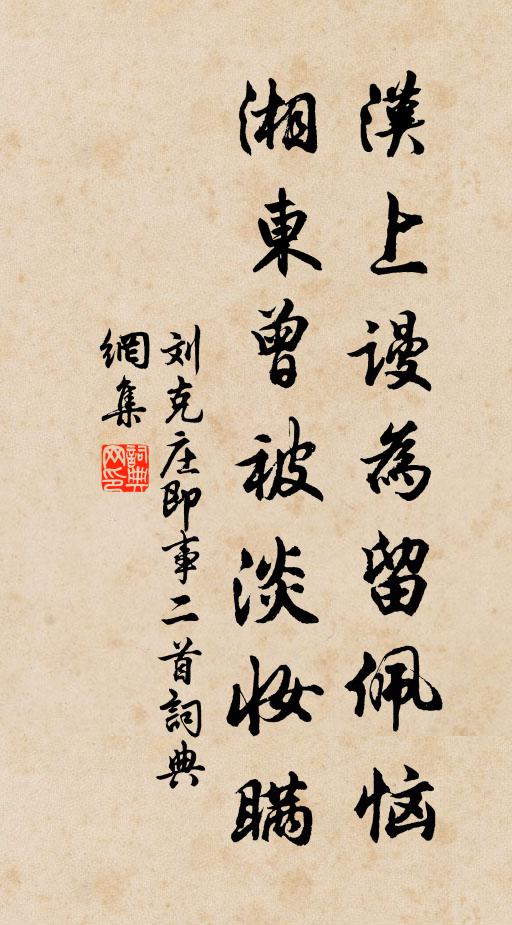 漢上謾為留佩恼
湘東曾被淡妆瞞
刘克庄即事二首詞典
網集
詞典网印